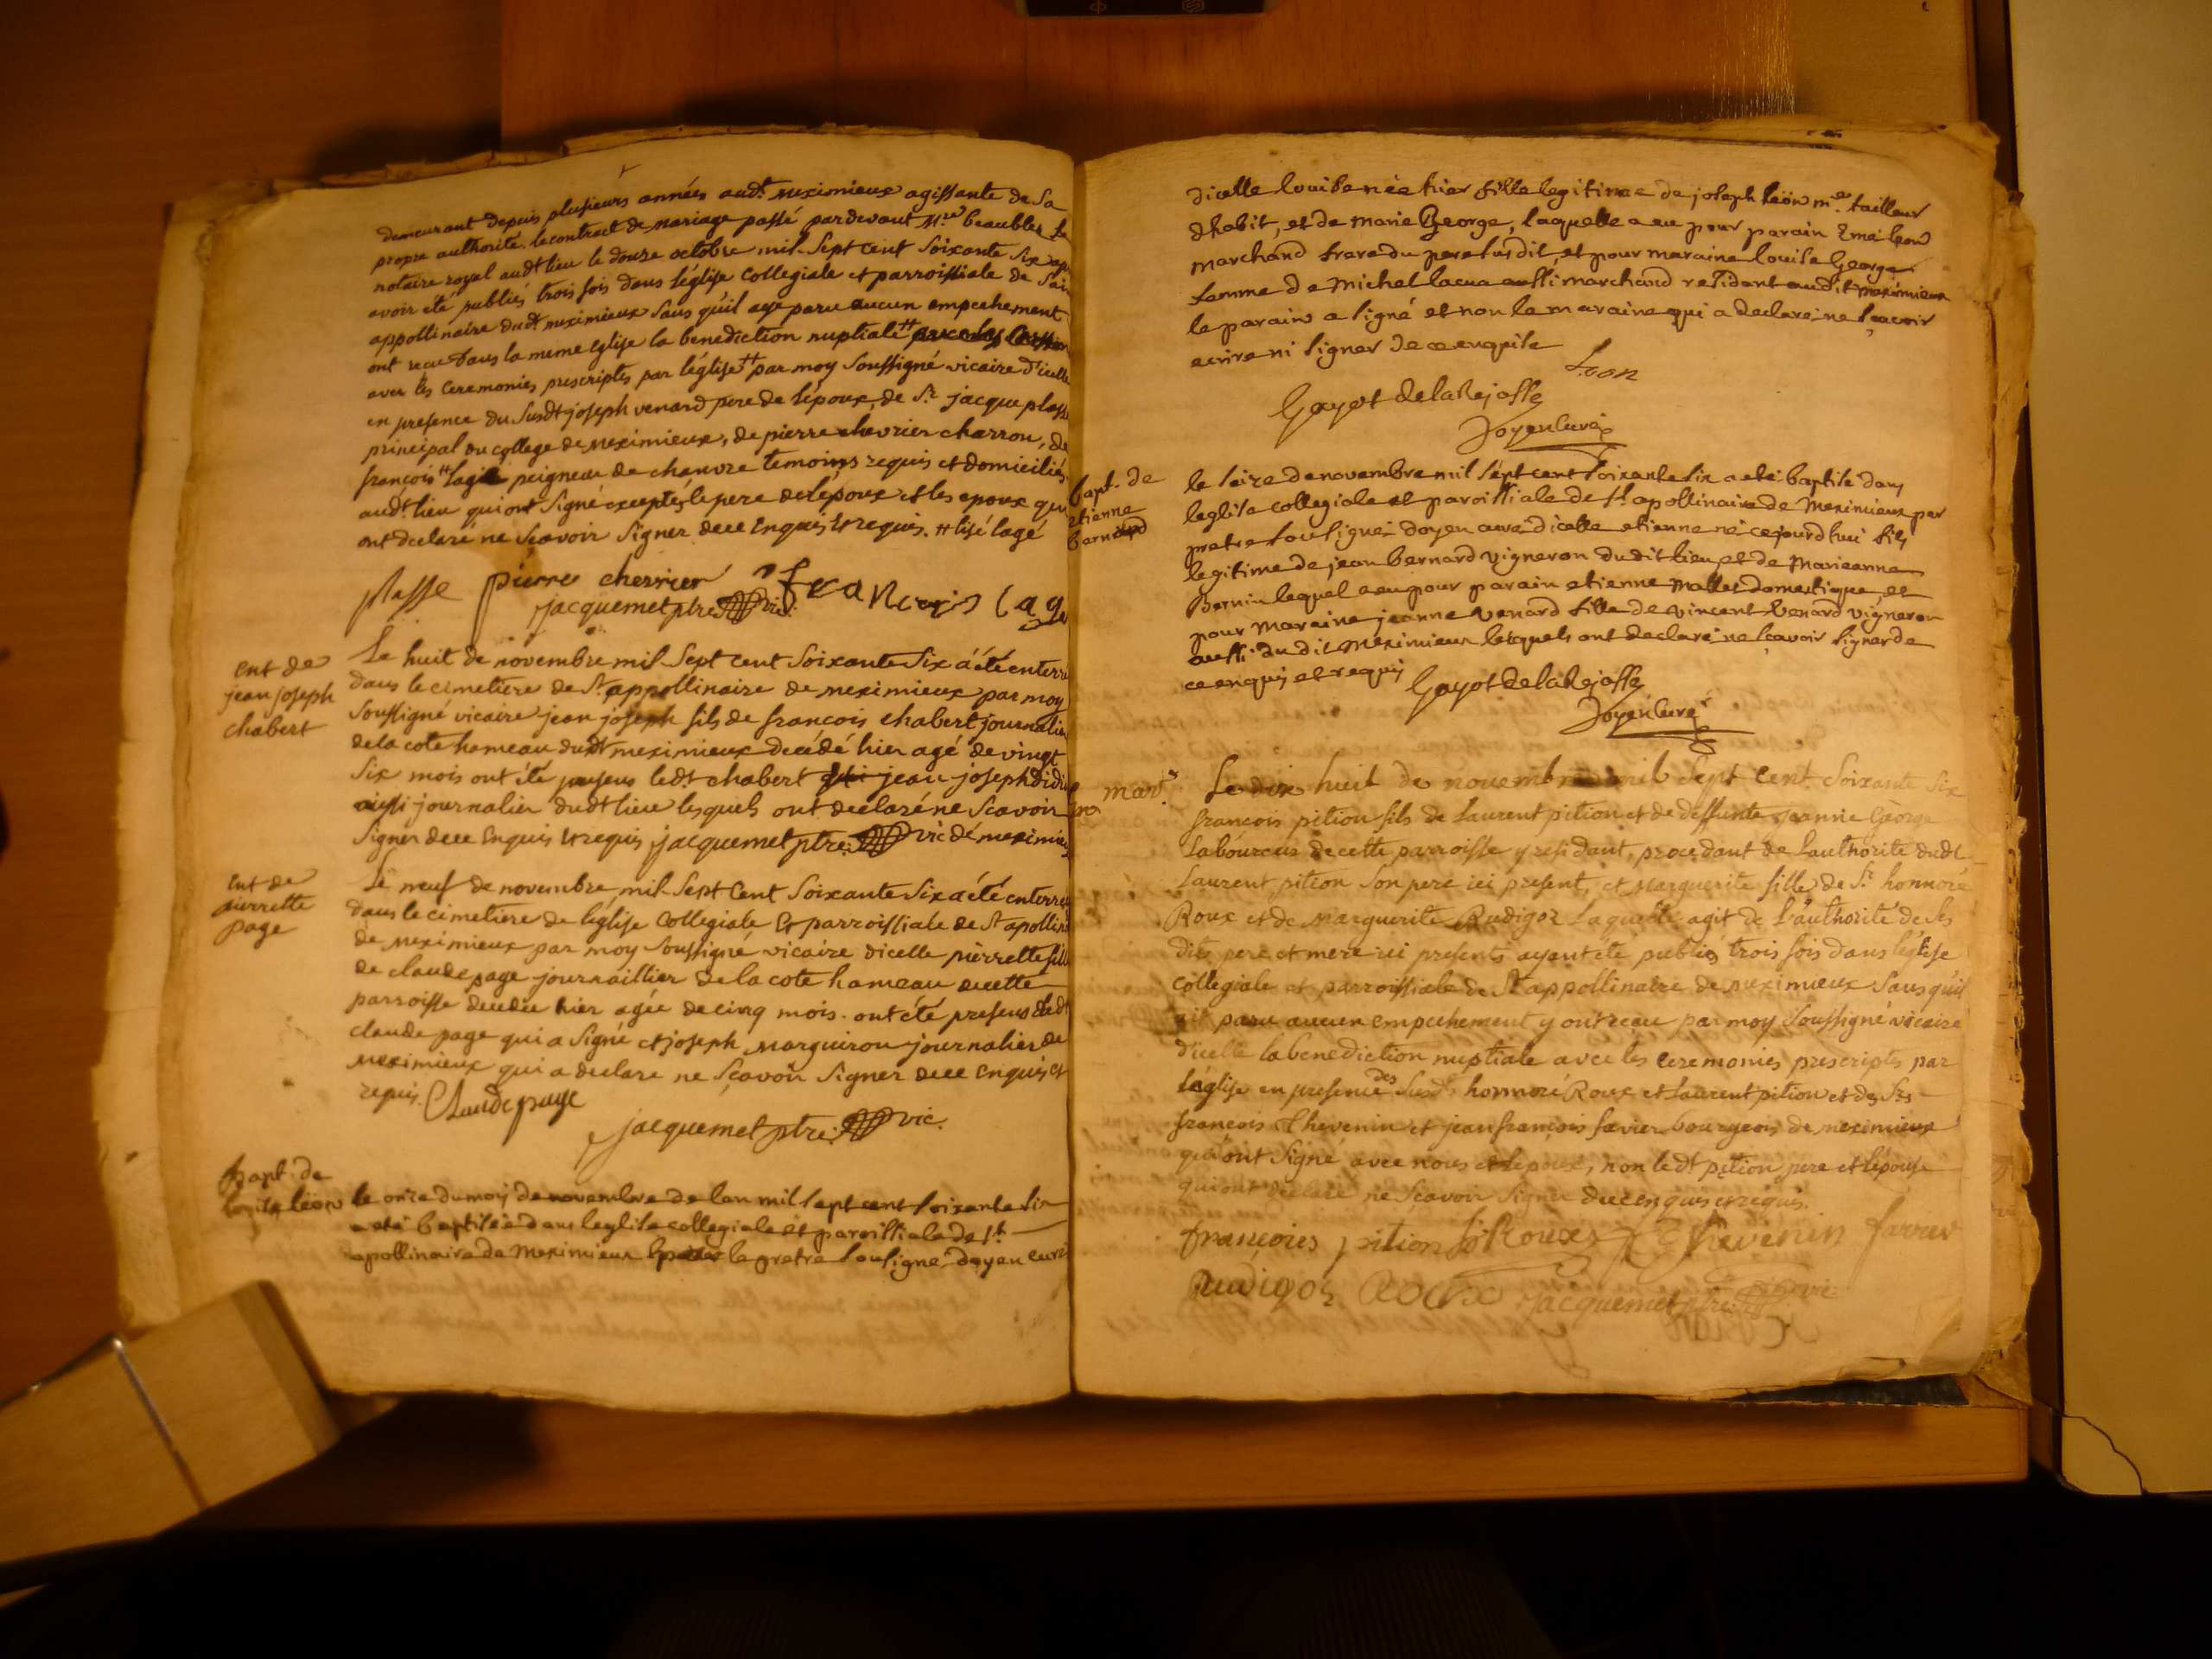 demeurant depuis plusieurs années audt. meximieux agissante de sa
propre authorité. le contract de mariage passé pardevant Mre beaublez
notaire royal audt lieu le douze octobre mil sept cent soixante six
avoir été publiés trois fois dans léglise collegiale et parroissiale de
appollinaire dudt. meximieux sans qu'il aye paru aucun empechement
ont recu dans la meme eglise la benediction nuptiale #
aver les ceremonies prescriptes par léglise # par moy soussigné vicaire d'icelle
en presence du susdt joseph venard pere de lépoux, de Sr. jacque plasse
principal du college de meximieux, de pierre chevrier charron, de
françois # lagé peigneur de chanvre temoins requis et domiciliés
audt. lieu qui ont signé exceptés le pere de lépoux et les epoux qui
ont declaré ne sçavoir signer de ce enquis et requis. # lisé lagé
plasse pierre chevrier francois lagé
jacquemet ptre vic.
ent de
jean joseph
chabert
Le huit de novembre mil sept cent soixante six a été enterré
dans le cimetiere de St. appollinaire de meximieux par moy
soussigné vicaire jean joseph fils de françois chabert journalier
de la cote hameau dudt meximieux decédé hier agé de vingt
six mois ont été presens ledt. chabert jean joseph didi
aussi journalier dudt lieu lesquels ont declaré ne scavoir
signer de ce enquis et requis jacquemet ptre. vic de meximieux
ent de
pierrette
page
Le neuf de novembre mil sept cent soixante six a été enterrée
dans le cimetiere de léglise collegiale et parroissiale de St apollin
de meximieux par moy soussigné vicaire dicelle pierrette fille
de claude page journaillier de la cote hameau de cette
parroisse decedée hier agée de cinq mois. ont été presens ledt
claude page qui a signé et joseph marguiron journalier de
meximieux qui a declare ne sçavoir signer de ce enquis et
requis. Claude page
jacquemet ptre. vic.
bapt. de
louise leön
le onze du moy de novembre de lan mil sept cent soixante six
a eté baptisée dans leglise collegiale et paroissiale de st
apollinaire de Meximieux le pretre sousigné doyen curé
dicelle louise née hier fille legitime de joseph leön me. tailleur
dhabit, et de marie George, laquelle a eu pour parain leon
marchand frere du pere susdit, et pour maraine louise George
femme de Michel lacua aussi marchand residant audit meximieux
le parain a signé et non la maraine qui a declaré ne sçavoir
ecrire ni signer de ce enquise
Leon
Gayot de la Rejasse
doyen curé
bapt. de
etienne
bernard
le seize de novembre mil sept cent soixante six a eté baptisé dans
leglise collegiale et paroissiale de st apollinaire de Meximieux par
pretre sousigné doyen curé dicelle etienne né cejourdhui fils
legitime de jean bernard vigneron dudit lieu et de Marieanne
Bernin lequel a eu pour parain etienne Mallet domestique, et
pour Maraine jeanne venard fille de vincent venard vigneron
aussi du dit Meximieux lesquels ont declaré ne sçavoir signer de
ce enquis et requis Gayot de la Rejasse
doyen curé
mar.
Le dix huit de novembre mil sept cent soixante six
françois pition fils de laurent pition et de deffunte jeanne George
laboureur de cette parroisse y residant, procedant de lauthorité dudt
laurent pition son pere ici present, et marguerite fille de Sr. honnoré
Roux et de marguerite Rudigoz laquelle agit de l'authorité de ses
dits pere et mere ici presents ayant été publies trois fois dans léglise
collegiale et parroissiale de St appollinaire de meximieux sans qu'il
ait paru aucun empechement y ont recu par moy soussigné vicaire
dicelle la benediction nuptiale avec les ceremonies prescriptes par
léglise en presence des susdts honnoré Roux et laurent pition et des Srs
françois Thevenin et jean françois favier bourgeois de meximieux
qui ont signé avec nous et lépoux, non ledt pition pere et lépouse
qui ont declaré ne scavoir signer de ce enquis et requis.
françoies pition Roux Thevenin favier
Rudigoz Roux jacquemet ptre. vic.